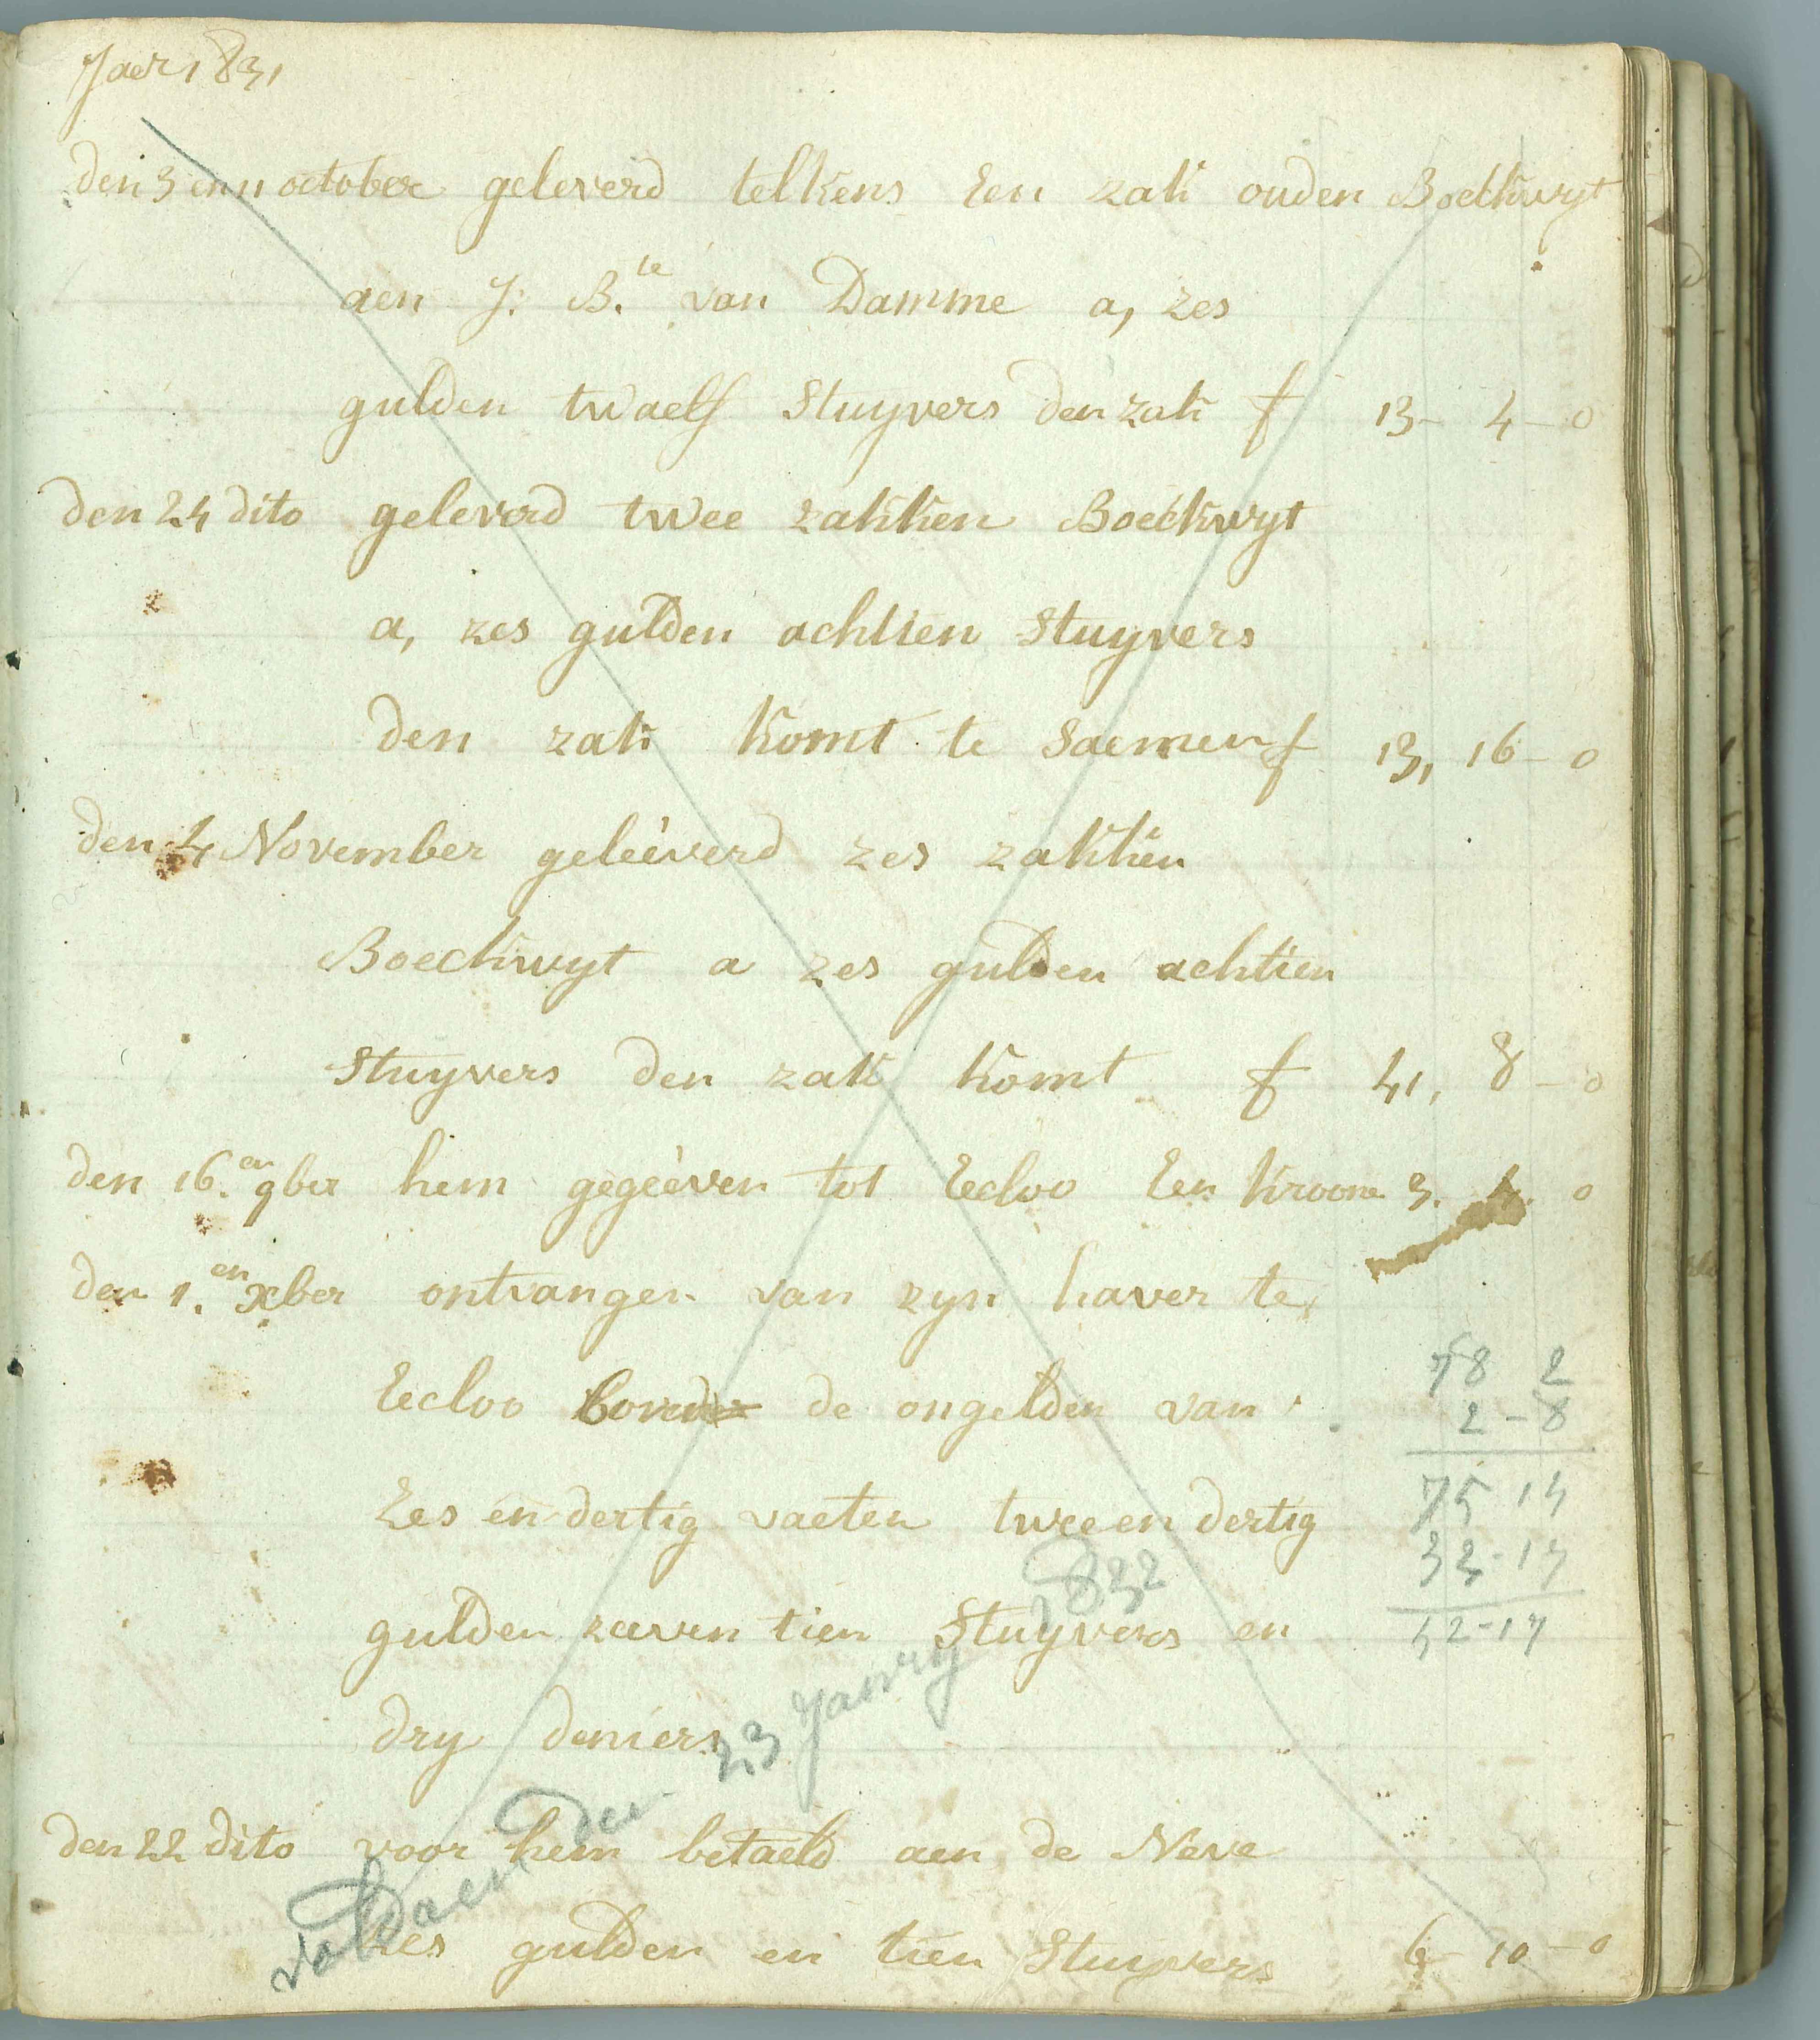 Jaer 1831
den 3 en 11 october geleverd telkens Een zak ouden Boeckwyt
aen J: B.te van Damme a, zes
gulden twaelf Stuyvers den zak f 13 - 4 - 0
den 24 dito geleverd twee zakken Boeckwyt
a, zes gulden achtien Stuyvers
den zak komt te Saemen f 13, 16 - 0
den 4 November geleeverd zes zakken
Boeckwyt a zes gulden achtien
Stuyvers den zak komt f 41, 8 - 0
den 16.en 9ber hem gegeeven tot Eecloo Een kroone 3. 0
den 1.en xber ontvangen van zyn haver te
Eecloo de ongelden van
Zes en dertig vaeten twee en dertig
gulden zeeven tien Stuyvers en
dry deniers
den 22 dito voor hem betaeld aen de Neve
zes gulden en tien Stuyvers 6 - 10 - 0
78 2
2 - 8
75 14
32 - 17
42 - 17
voldaen den 23 Janvry 1832